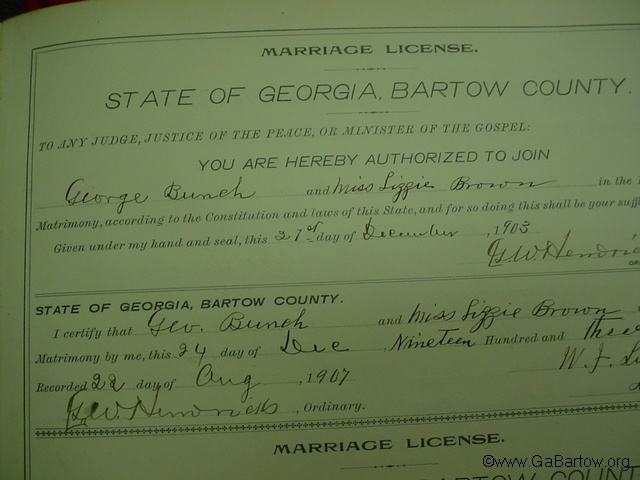 MARRIAGE LICENSE.
STATE OF GEORGIA, BARTOW COUNTY.
TO ANY JUDGE, JUSTICE OF THE PEACE, OR MINISTER OF THE GOSPEL:
YOU ARE HEREBY AUTHORIZED TO JOIN
George Bunch and Miss Lizzie Brown in the
Matrimony, according to the Constitution and laws of this State, and for so doing this shall be your suffi
Given under my hand and seal, this 21st day of December, 1903
G.W. Hendric
STATE OF GEORGIA, BARTOW COUNTY.
I certify that Geo. Bunch and Miss Lizzie Brown
Matrimony by me, this 24 day of Dec, Nineteen Hundred and three
W. J.
Recorded 22 day of Aug, 1907
G.W. Hendricks, Ordinary.
MARRIAGE LICENSE.
BARTOW COUNT
©www.GaBartow.org